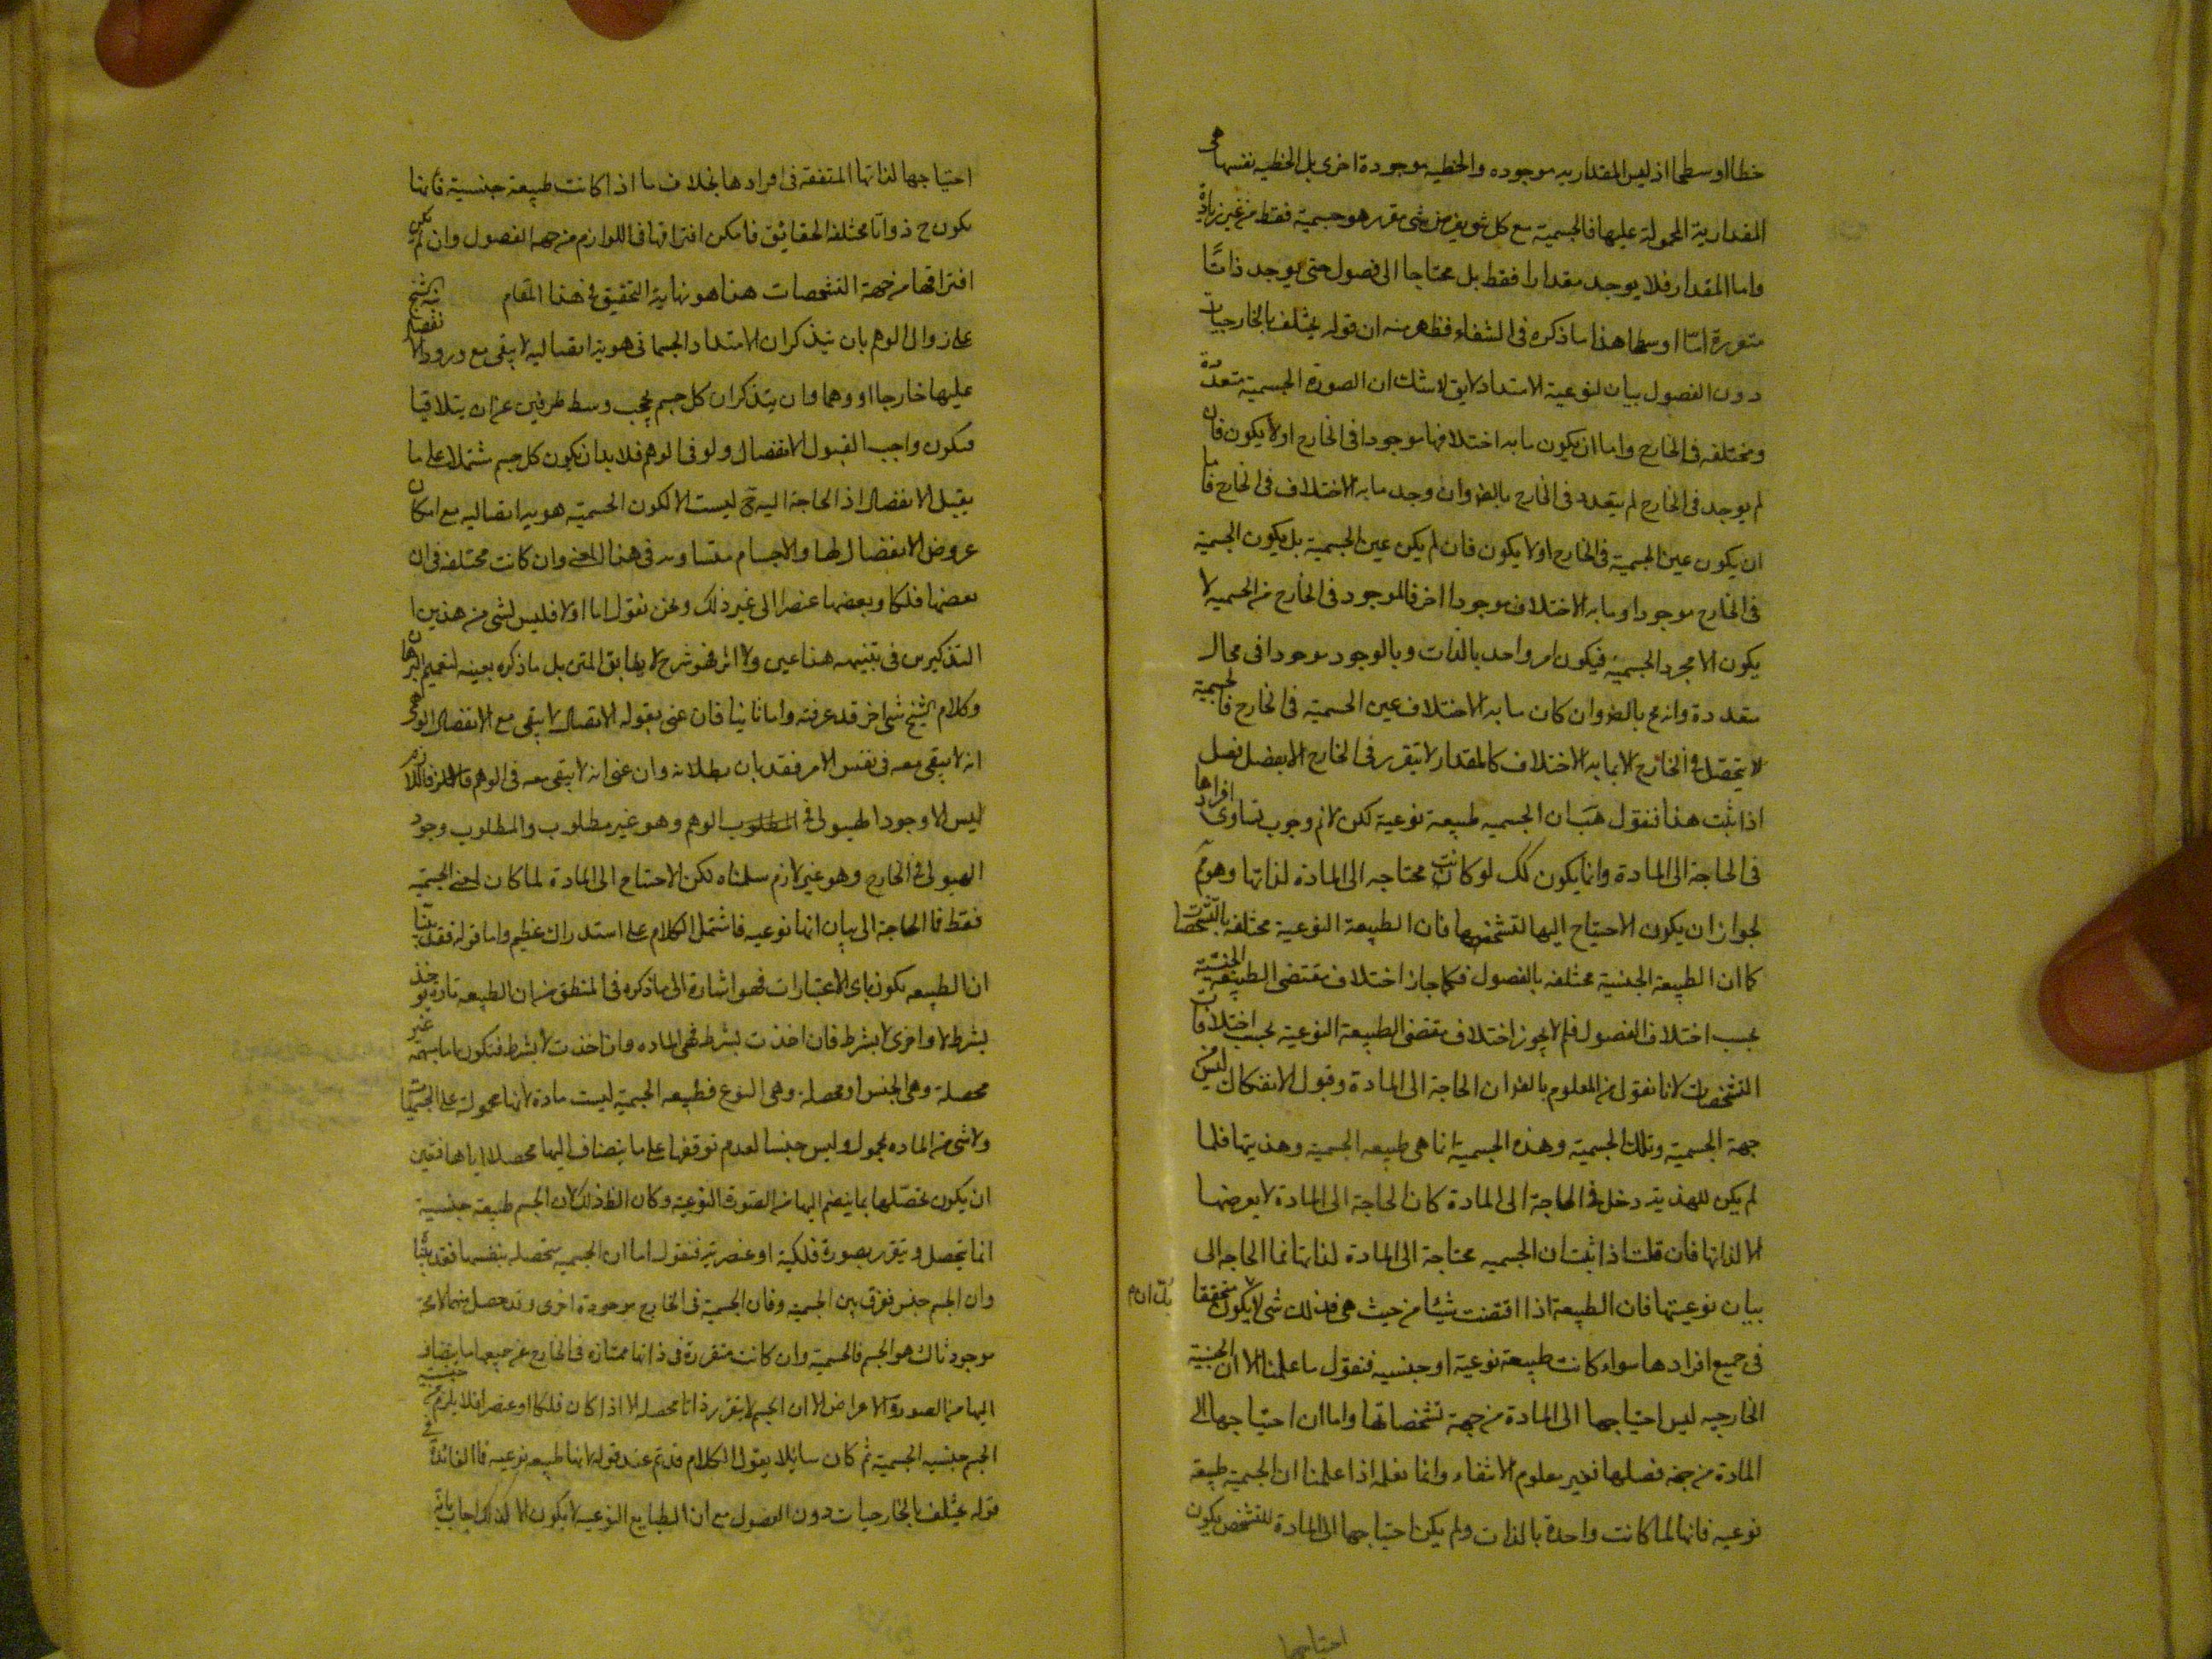 خطا او سطحا اذ ليس المقداريه موجوده والخطيه موجودة اخرى بل الخطيه نفسها هى
المقدارية المحمولة عليها فالجسمية مع كل شىء يفرض شى متقرر هو جسمية فقط من غير زيادة
واما المقدار فلا يوجد مقدارا فقط بل محتاجا الى فصول حتى يوجد ذاتا
متقررة اما او سطحا هذا ما ذكره فى الشفاء فظهر منه ان قوله يختلف بالخارجيات
دون الفصول بيان لنوعية الامتداد لايق لا شك ان الصورة الجسمية متعددة
ومختلفه فى الخارج واما ان يكون ما به اختلافها موجودا فى الخارج او لا يكون فان
لم يوجد فى الخارج لم يتعدد فى الخارج بالضر وان وجد ما به الاختلاف فى الخارج فاما
ان يكون عين الجسمية فى الخارج او لا يكون فان لم يكن عين الجسمية بل يكون الجسمية
فى الخارج موجودا وما به الاختلاف موجودا اخر فالموجود فى الخارج من الجسميه لا
يكون الا مجرد الجسميه فيكون امر واحد بالذات وبالوجود موجودا فى محال
متعددة وانه مح بالضر وان كان ما به الاختلاف عين الجسميه فى الخارج فالجسمية
لا يتحصل فى الخارج الا بما به الاختلاف كالمقدار لا يتقرر فى الخارج الا بفصل فصل
اذا ثبت هذا فنقول هب ان الجسميه طبيعة نوعية لكن لا نم وجوب تساوى افرادها
فى الحاجة الى المادة وانما يكون كك لو كانت محتاجه الى المادة لذاتها وهو مم
لجواز ان يكون الاحتياج اليها لتشخصها فان الطبيعة النوعية مختلفة بالتشخصات
كما ان الطبيعة الجنسية مختلفه بالفصول فكما جاز اختلاف مقتضى الطبيعة الجنسية
بحسب اختلاف الفصول فلم لا يجوز اختلاف مقتضى الطبيعة النوعية بحسب اختلاف
التشخصات لانا نقول من المعلوم بالضر ان الحاجة الى المادة وقبول الانفكاك ليس من
جهة الجسمية وتلك الجسمية وهذه الجسمية انما هى طبيعه الجسمية وهذيتها فلما
لم يكن للهذية دخل فى الحاجة الى المادة كان الحاجة الى المادة لا يعرضها
الا لذاتها فان قلت اذا ثبت ان الجسميه محتاجة الى المادة لذاتها فما الحاجه الى
بيان نوعيتها فان الطبيعة اذا اقتضت شيئا من حيث هى فذلك شى لا يكون متحققا
فى جميع افرادها سواء كانت طبيعة نوعية او جنسيه فنقول ما علمنا الا ان الجسمية
الخارجيه ليس احتياجها الى المادة من جهة تشخصاتها واما ان احتياجها الى
المادة من جهة فصلها فغير معلوم الانتفاء وانما نعلم اذا علمنا ان الجسمية طبيعة
نوعيه فانها لما كانت واحدة بالذات ولم يكن احتياجها الى المادة للتشخص يكون
احتياجها
احتياجها لذاتها المتفقه فى افرادها بخلاف ما اذا كانت طبيعة جنسية فانها
يكون ح ذواتا مختلفة الحقائق فامكن افتراقها فى اللوازم من جهة الفصول وان لم يكن
افتراقها من جهة التشخصات هذا هو نهاية التحقيق فى هذا المقام
على زوال الوهم بان يتذكر ان الامتداد الجسمانى هوية اتصاليه لا يبقى مع ورود الانفصال
عليها خارجا او وهما وان يتذكر ان كل جسم يحجب وسطه طرفين عن ان يتلاقيا
فيكون واجب القبول الانفصال ولو فى الوهم فلا بد ان يكون كل جسم مشتملا على ما
يقبل الانفصال اذ الحاجة اليه ليست الا لكون الجسمية هوية اتصاليه مع امكان
عروض الانفصال لها والاجسام متساويه فى هذا المعنى وان كانت مختلفه فى ان
بعضها فلكا وبعضها عنصرا الى غير ذلك ونحن نقول اما اولا فليس لشى من هذين
التذكيرين فى تنبيهه هذا عين ولا اثر فهو شرح لا يطابق المتن بل ما ذكره بعينه لتعميم البرهان
وكلام الشيخ شى اخر قد عرفته واما ثانيا فان عنى بقوله الاتصال لا يبقى مع الانفصال الوهمى
انه لا يبقى معه فى نفس الامر فقد بان بطلانه وان عنى انه لا يبقى معه فى الوهم فاللازم
ليس الا وجود الهيولى فى الوهم وهو غير مطلوب والمطلوب وجود
الهيولى فى الخارج وهو غير لازم سلمناه لكن الاحتياج الى المادة لما كان لمعنى الجسمية
فقط فما الحاجة الى بيان انها نوعيه فاشتمل الكلام على استدراك عظيم واما قوله فقد بينا
ان الطبيعه يكون باى الاعتبارات فهو اشارة الى ما ذكره فى المنطق من ان الطبيعه تارة يوخذ
بشرط لا واخرى لا بشرط فان اخذت بشرط فهى الماده وان اخذت لا بشرط فيكون اما مبهمة غير
محصلة وهى الجنس او محصلة وهى النوع فطبيعه الجسمية ليست مادة لانها محمولة على الجسميات
ولا شى من الماده بمحمول وليس جنسا لعدم توقفها على ما ينضاف اليها محصلا اياها فتعين
ان يكون تحصلها بما ينضم اليها من الصورة النوعية وكان الظ ذلك لان الجسم طبيعة جنسية
انما يتحصل ويتقرر بصورة فلكية او عنصرية فنقول اما ان الجسميه متحصله بنفسها فقد بينا
وان الجسم جنس نفرق بين الجسمية وفان الجسمية فى الخارج موجودة اخرى وقد حصل منهما لا محة
موجود ثالث هو الجسم فالجسمية وان كانت متقررة فى ذاتها ممتازه فى الخارج عن جميع ما يضاف
اليها من الصور والاعراض الا ان الجسم لا يتقرر ذاتا محصله الا اذا كان فلكا او عنصرا فلا يلزم من جنسية
الجسم جنسيه الجسمية ثم كان سايلا يقول الكلام قد تم عند قوله لانها طبيعه نوعيه فما الفائدة فى
قوله يختلف بالخارجيات دون الفصول مع ان الطبايع النوعيه لا يكون الا كذلك اجاب بانه